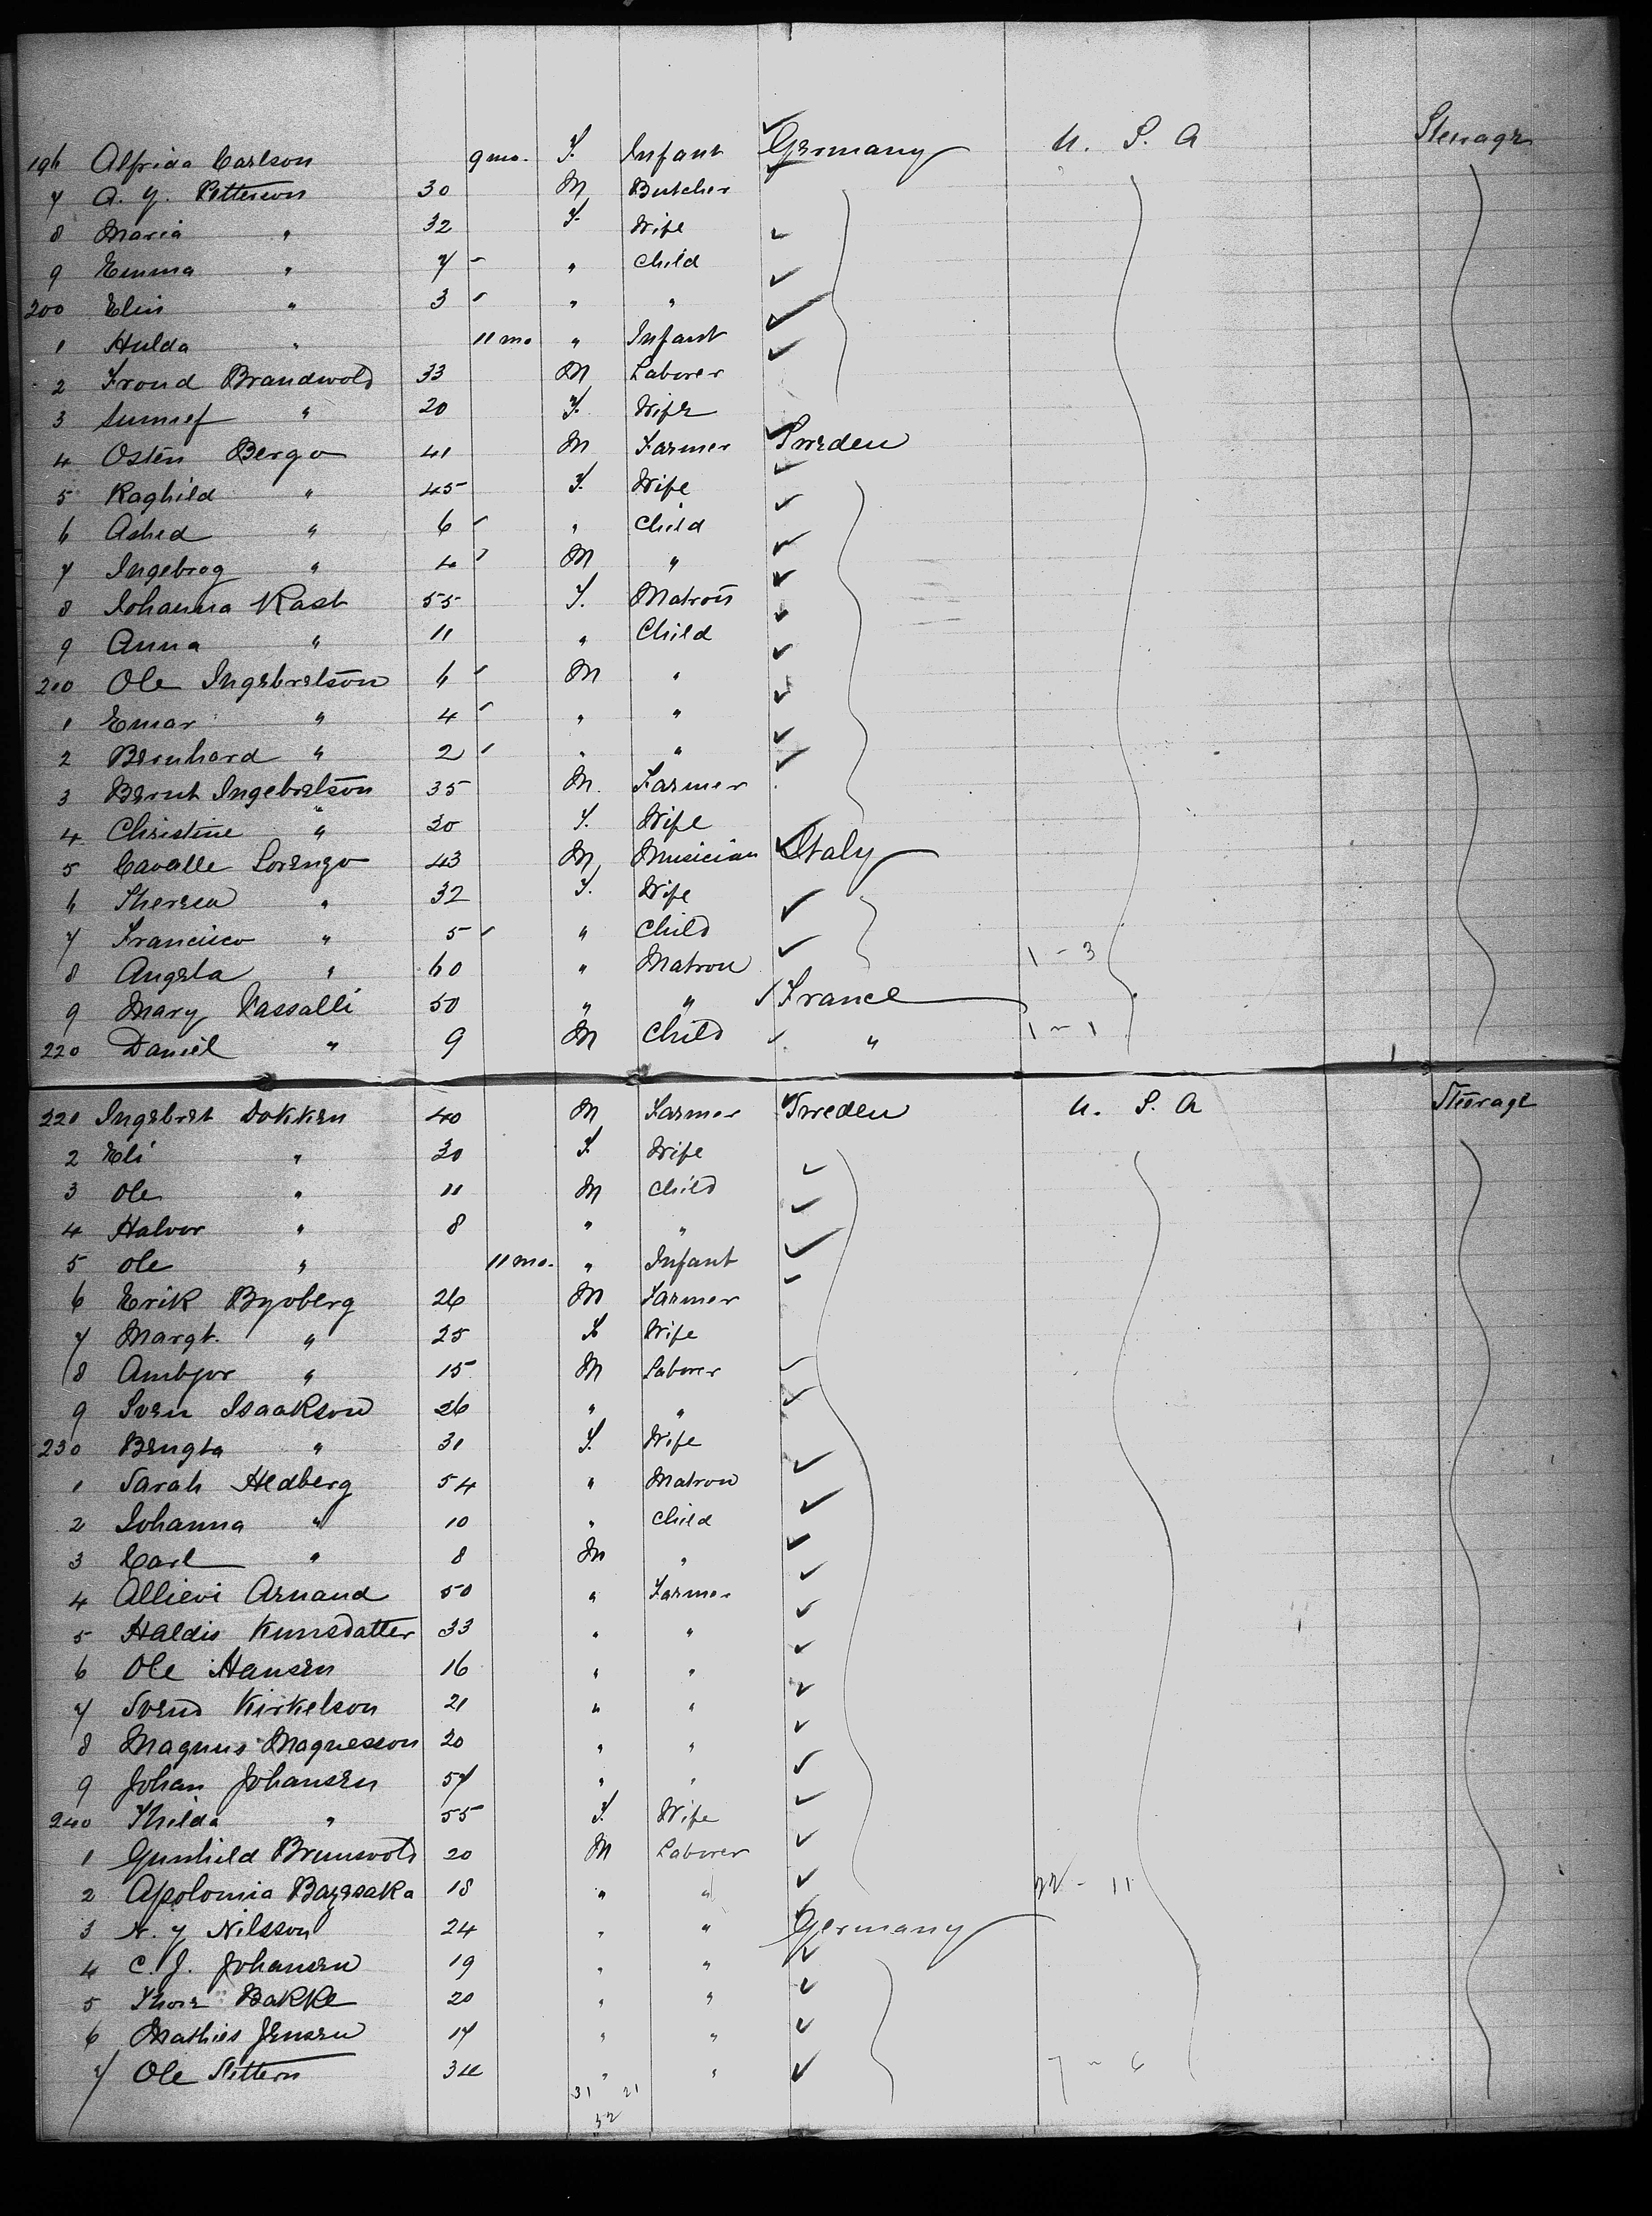 196 Alfrida Carlson 9 mo. F. Infant Germany U. S. A Steerage
7 A. G. Petterson 30 M Butcher
8 Maria " 32 F. Wife
9 Emma " 7 " Child
200 Elin " 3 " "
1 Hulda " 11 mo " Infant
2 Trond Brandwold 33 M Laborer
3 " 20 F. Wife
4 Osten Bergo 41 M Farmer Sweden
5 Raghild " 45 F. Wife
6 Ashed " 6 " Child
7 Ingebrog " 4 M "
8 Johanna Kast 55 F. Matron
9 Anna " 11 " Child
210 Ole Ingebretson 6 M "
1 Einar " 4 " "
2 Bernhard " 2 " "
3 Bernt Ingebretson 35 M. Farmer
4 Christine " 30 F. Wife
5 Cavalle Lorenzo 43 M Musician Italy
6 Theresa " 32 F. Wife
7 Francisco " 5 " Child
8 Angela " 60 " Matron 1 - 3
9 Mary Vassalli 50 " " France
220 Daniel " 9 M Child " 1 - 1
221 Ingebret Dokken 40 M Farmer Sweden U. S. A Steerage
2 Eli " 30 F. Wife
3 Ole " 11 M Child
4 Halvor " 8 " "
5 Ole " 11 mo. " Infant
6 Erik Byoberg 26 M Farmer
7 Margt. " 25 F Wife
8 Ambjor " 15 M Laborer
9 Sven Isaakson 26 " "
230 Bengta " 31 F. Wife
1 Sarah Hedberg 54 " Matron
2 Johanna " 10 " Child
3 Carl " 8 M "
4 Allievi Arnaud 50 " Farmer
5 Haldis Kunsdatter 33 " "
6 Ole Hansen 16 " "
7 Svend Kirkelson 21 " "
8 Magnus Magnesson 20 " "
9 Johan Johansen 57 " "
240 Thilda " 55 F. Wife
1 Gunhild Brunwold 20 M Laborer
2 Apolomia Bayesaka 18 " " 22 - 11
3 N. J Nilsson 24 " " Germany
4 C. J. Johansen 19 " "
5 Thore Bakke 20 " "
6 Mathies Jensen 17 " "
7 Ole 34 " " 7 - 6
31 21
52